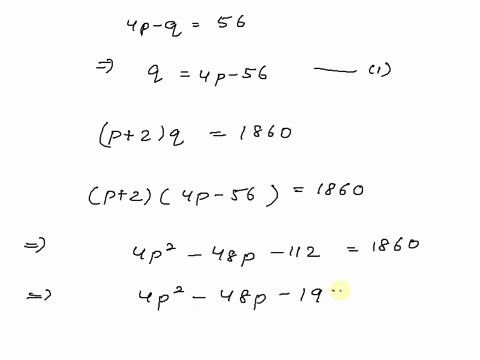 4p-q = 56
⇒ q = 4p-56 —— (1)
(p+2)q = 1860
(p+2)(4p-56) = 1860
⇒ 4p² - 48p - 112 = 1860
⇒ 4p² - 48p - 19